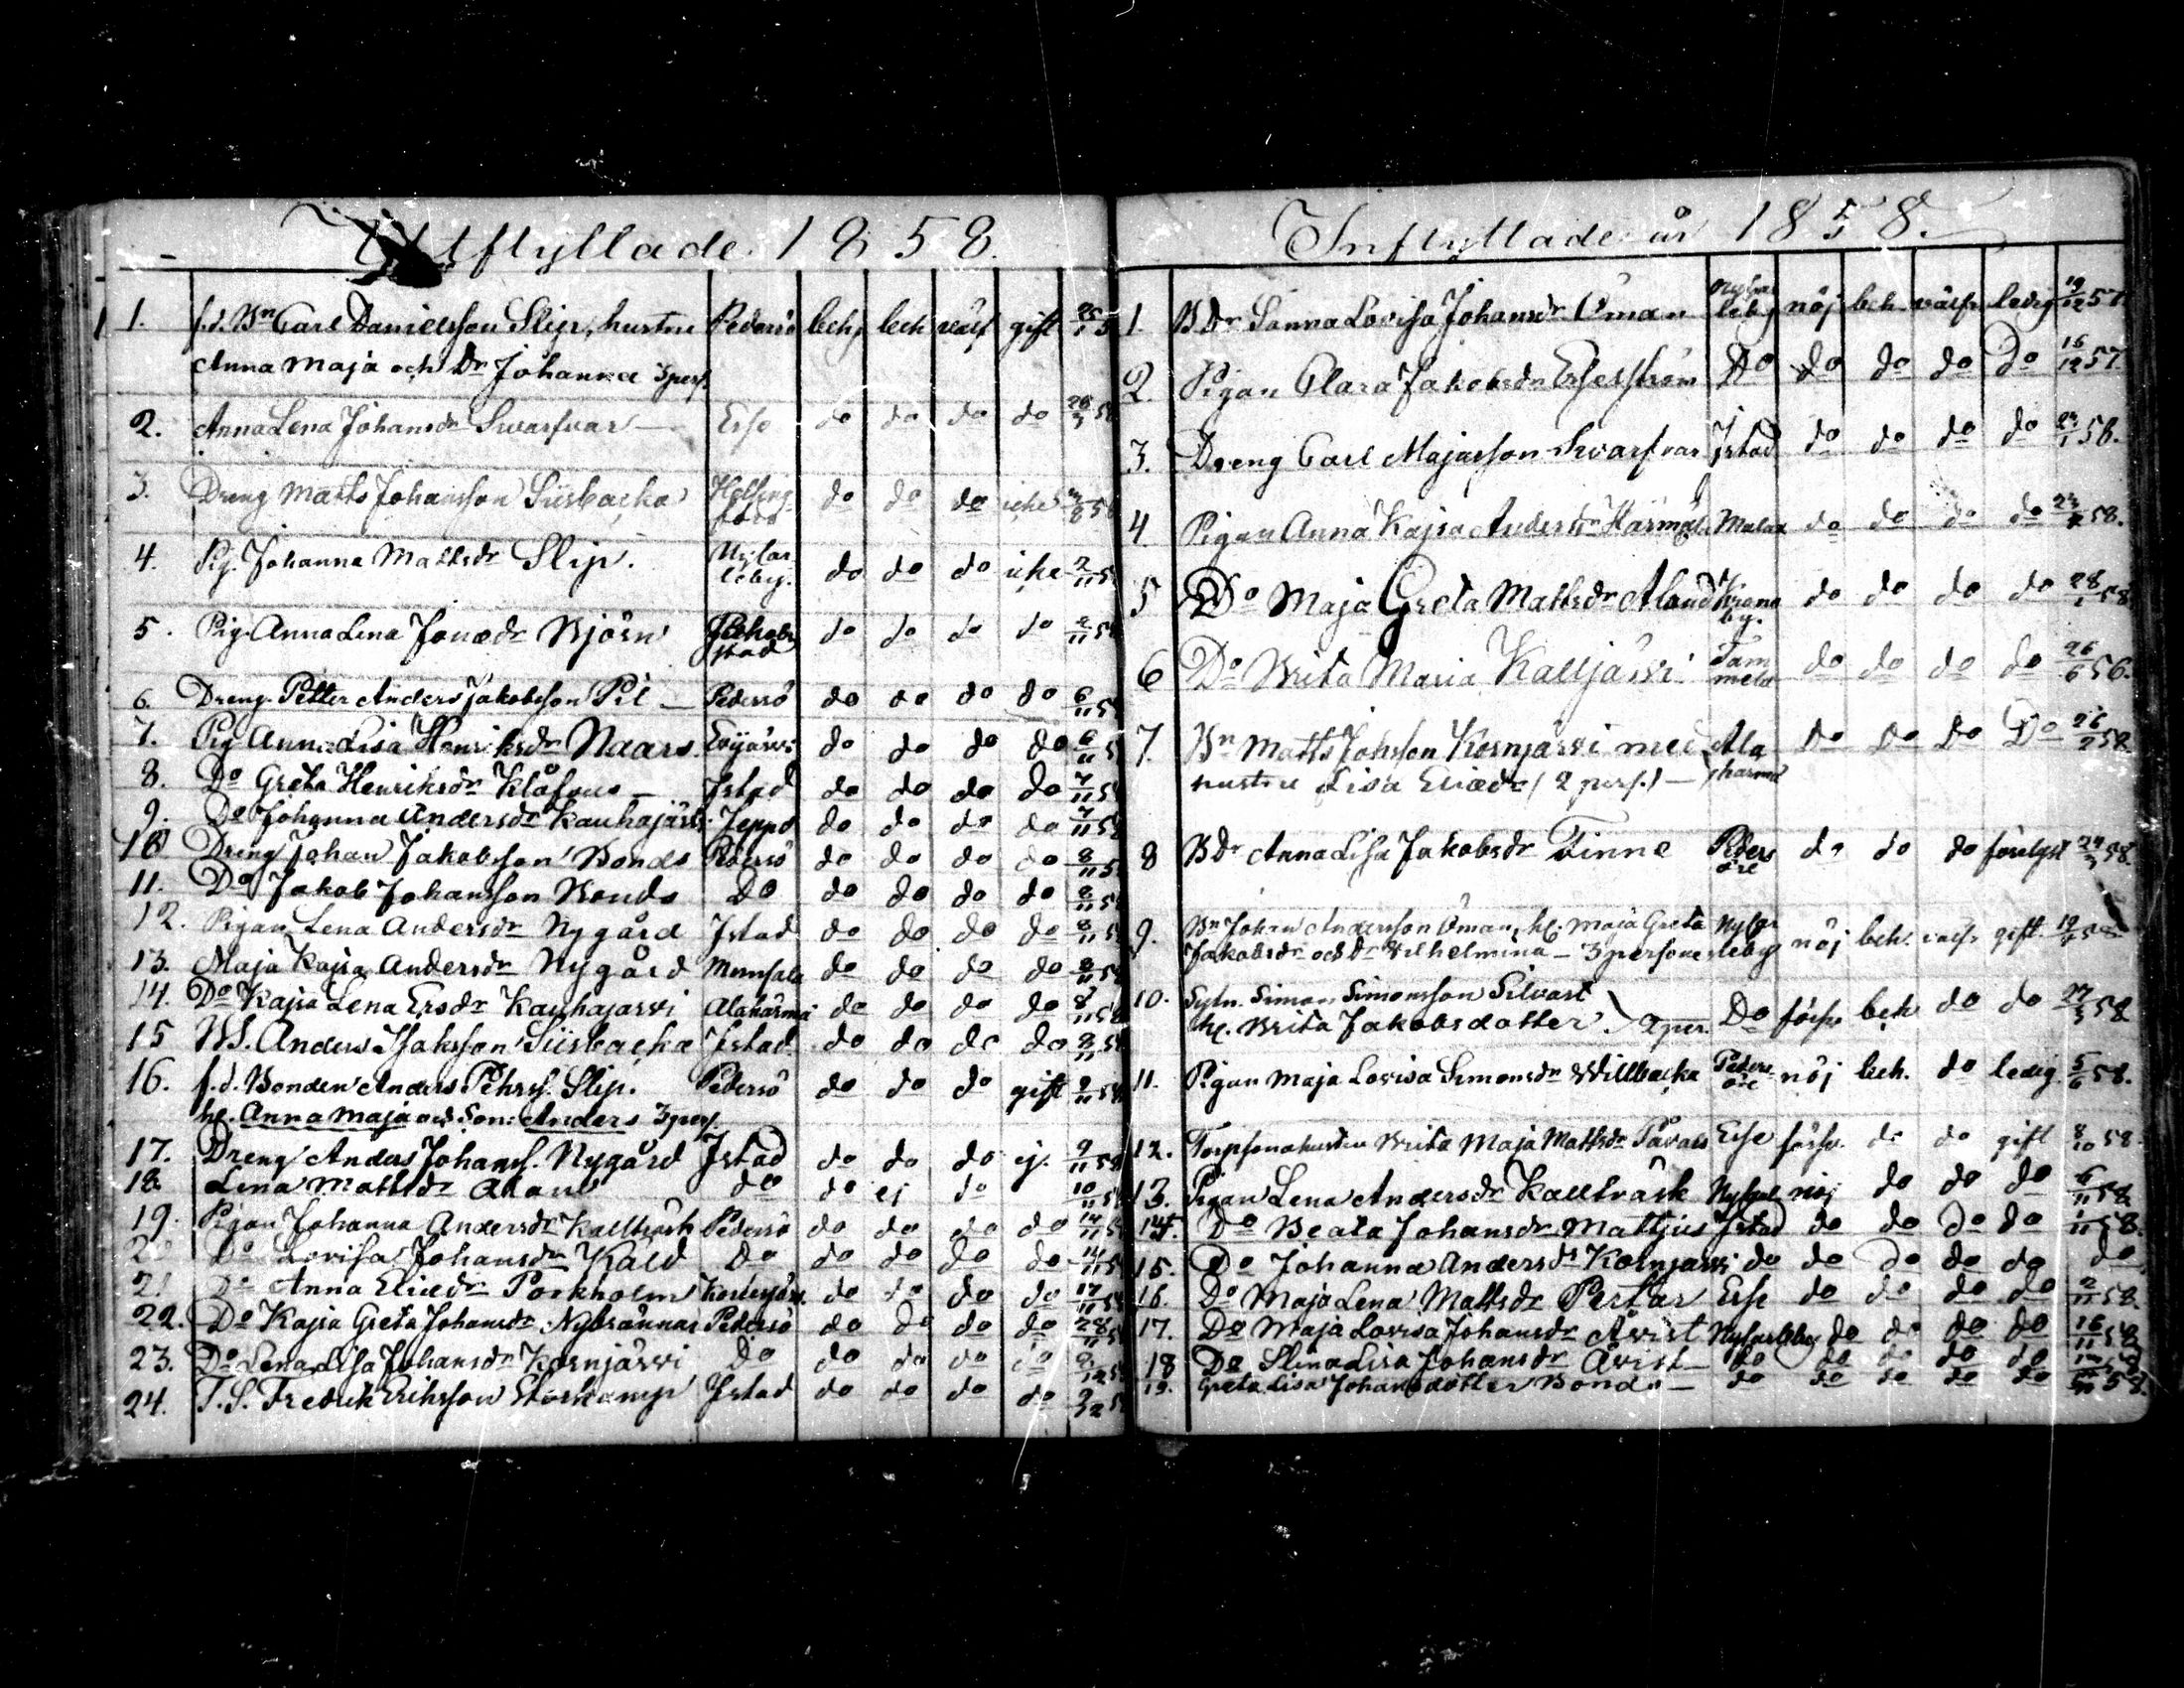 Utflyttade 1858.
1. f.d. Bn Carl Danielsson Slip, hustru Pedersö beh, beh välf gift
Anna Maja och Dr Johanna 3 pers.
2. Anna Lena Johansdr Svarfvar — Esse do do do do
3. Dreng Matts Johansson Siisbacka Helsing- do do do icke
fors
4. Pig. Johanna Mattsdr Slip. Nykar do do do icke 2/11 5
leby.
5. Pig. Anna Lena Jonædr Björn Jakobs do do do do 2/11 58
stad
6. Dreng. Petter Anders Jakobsson Pil — Pedersö do do do do 6/11 5
7. Pig Anna Lisa Henriksdr Naars. Evijärvi do do do do 6/11 5
8. Do Greta Henriksdr Klåfus — Jstad do do do do 7/11 58
9. Do Johanna Andersdr Kauhajärvi Jeppo do do do do 7/11 58
10 Dreng Johan Jakobsson Bonds Pedersö do do do do 8/11 5
11. Do Jakob Johansson Bonds Do do do do do 8/11 5
12. Pigan Lena Andersdr Nygård Jstad do do do do 8/11 5
13. Maja Kajsa Andersdr Nygård Munsala do do do do 8/11 58
14. Do Kajsa Lena Ersdr Kauhajarvi Alahärmä do do do do 8/11 58
15 Anders Isaksson Siisbacka Jstad. do do do do 8/11 58
16. f.d. Bonden Anders Pehrs. Slip. Pedersö do do do gift 9/11 58
h. Anna Maja och Son: Anders 3 pers.
17. Dreng Anders Johans. Nygård Jstad do do do ej. 9/11 58
18. Lena Mattsdr Åland do do ej do 10/11 58
19. Pigan Johanna Andersdr Kallträsk Pedersö do do do do 14/11 5
20 Do Lovisa Johansdr Kald Do do do do do 14/11 58
21 Do Anna Eliædr Porkholm Kortesjärvi. do do do do 17/11 58
22. Do Kajsa Greta Johansdr Nybrännar Pedersö do do do do 28/11 5
23. Do Lena Lisa Johansdr Kornjärvi Do do do do do
24. T.S. Fredrik Eriksson Storkamp Jstad do do do do
Inflyttade år 1858.
1. Bdr Sanna Lovisa Johansdr Öman leby nöj beh. välfr ledig 19/12 57
2. Pigan Clara Jakobsdr Do do do do Do 16/12 57.
3. Dreng Carl Majasson Svarfvar Jstad do do do do 58.
4. Pigan Anna Kajsa Andersdr Härmäl Malax do do do do 58.
5 Do Maja Greta Mattsdr Åland Krono do do do do 28/1 58
by.
6 Do Brita Maria Kalljärvi Tam do do do do 26/6 56.
mela
7. Bn Matts Johsson Kornjärvi med Ala do do do Do 26/2 58.
hustru Lisa Eliædr (2 pers.) — härmä
8 Bdr Anna Lisa Jakobsdr Finne Peders do do do 24/3 58.
öre
9. Bn Johan Andersson Öman, h. Maja Greta Nykar
Jakobsdr och Dr Vilhelmina — 3 personer leby nöj beh. välfr gift. 58
10. Sytn. Simon Simonsson Silvast
h. Brita Jakobsdotter. 2 per. Do förs. beh do do 27/5 58
11. Pigan Maja Lovisa Simonsdr Willbacka Peders nöj beh. do ledig. 5/6 58.
öre
12. Torpsonahustru Brita Maja Mattsdr Påvals Esse förs. do do gift 8/10 58.
13. Pigan Lena Andersdr Kallträsk Nykarl nöj do do do 6/11 58
14. Do Beata Johansdr Mattjus Jstad do do do do 1/11 58.
15. Do Johanna Andersdr Kornjarvi do do do do do do
16. Do Maja Lena Mattsdr Pertar Esse do do do do 2/11 58.
17. Do Maja Lovisa Johansdr Åvist Nykarleby do do do do 16/11 58
18 Do Stina Lisa Johansdr Åvist — do do do do do
19. Greta Lisa Johansdotter Bonds — do do do do do 58.